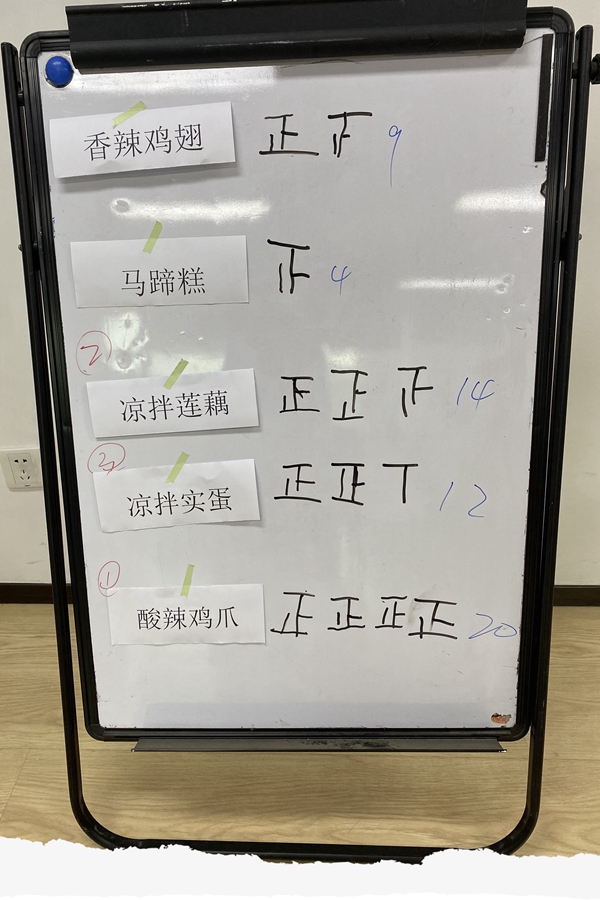 香辣鸡翅 正 正 9
马蹄糕 正 4
②
凉拌莲藕 正 正 正 14
③
凉拌实蛋 正 正 丅 12
①
酸辣鸡爪 正 正 正 正 20